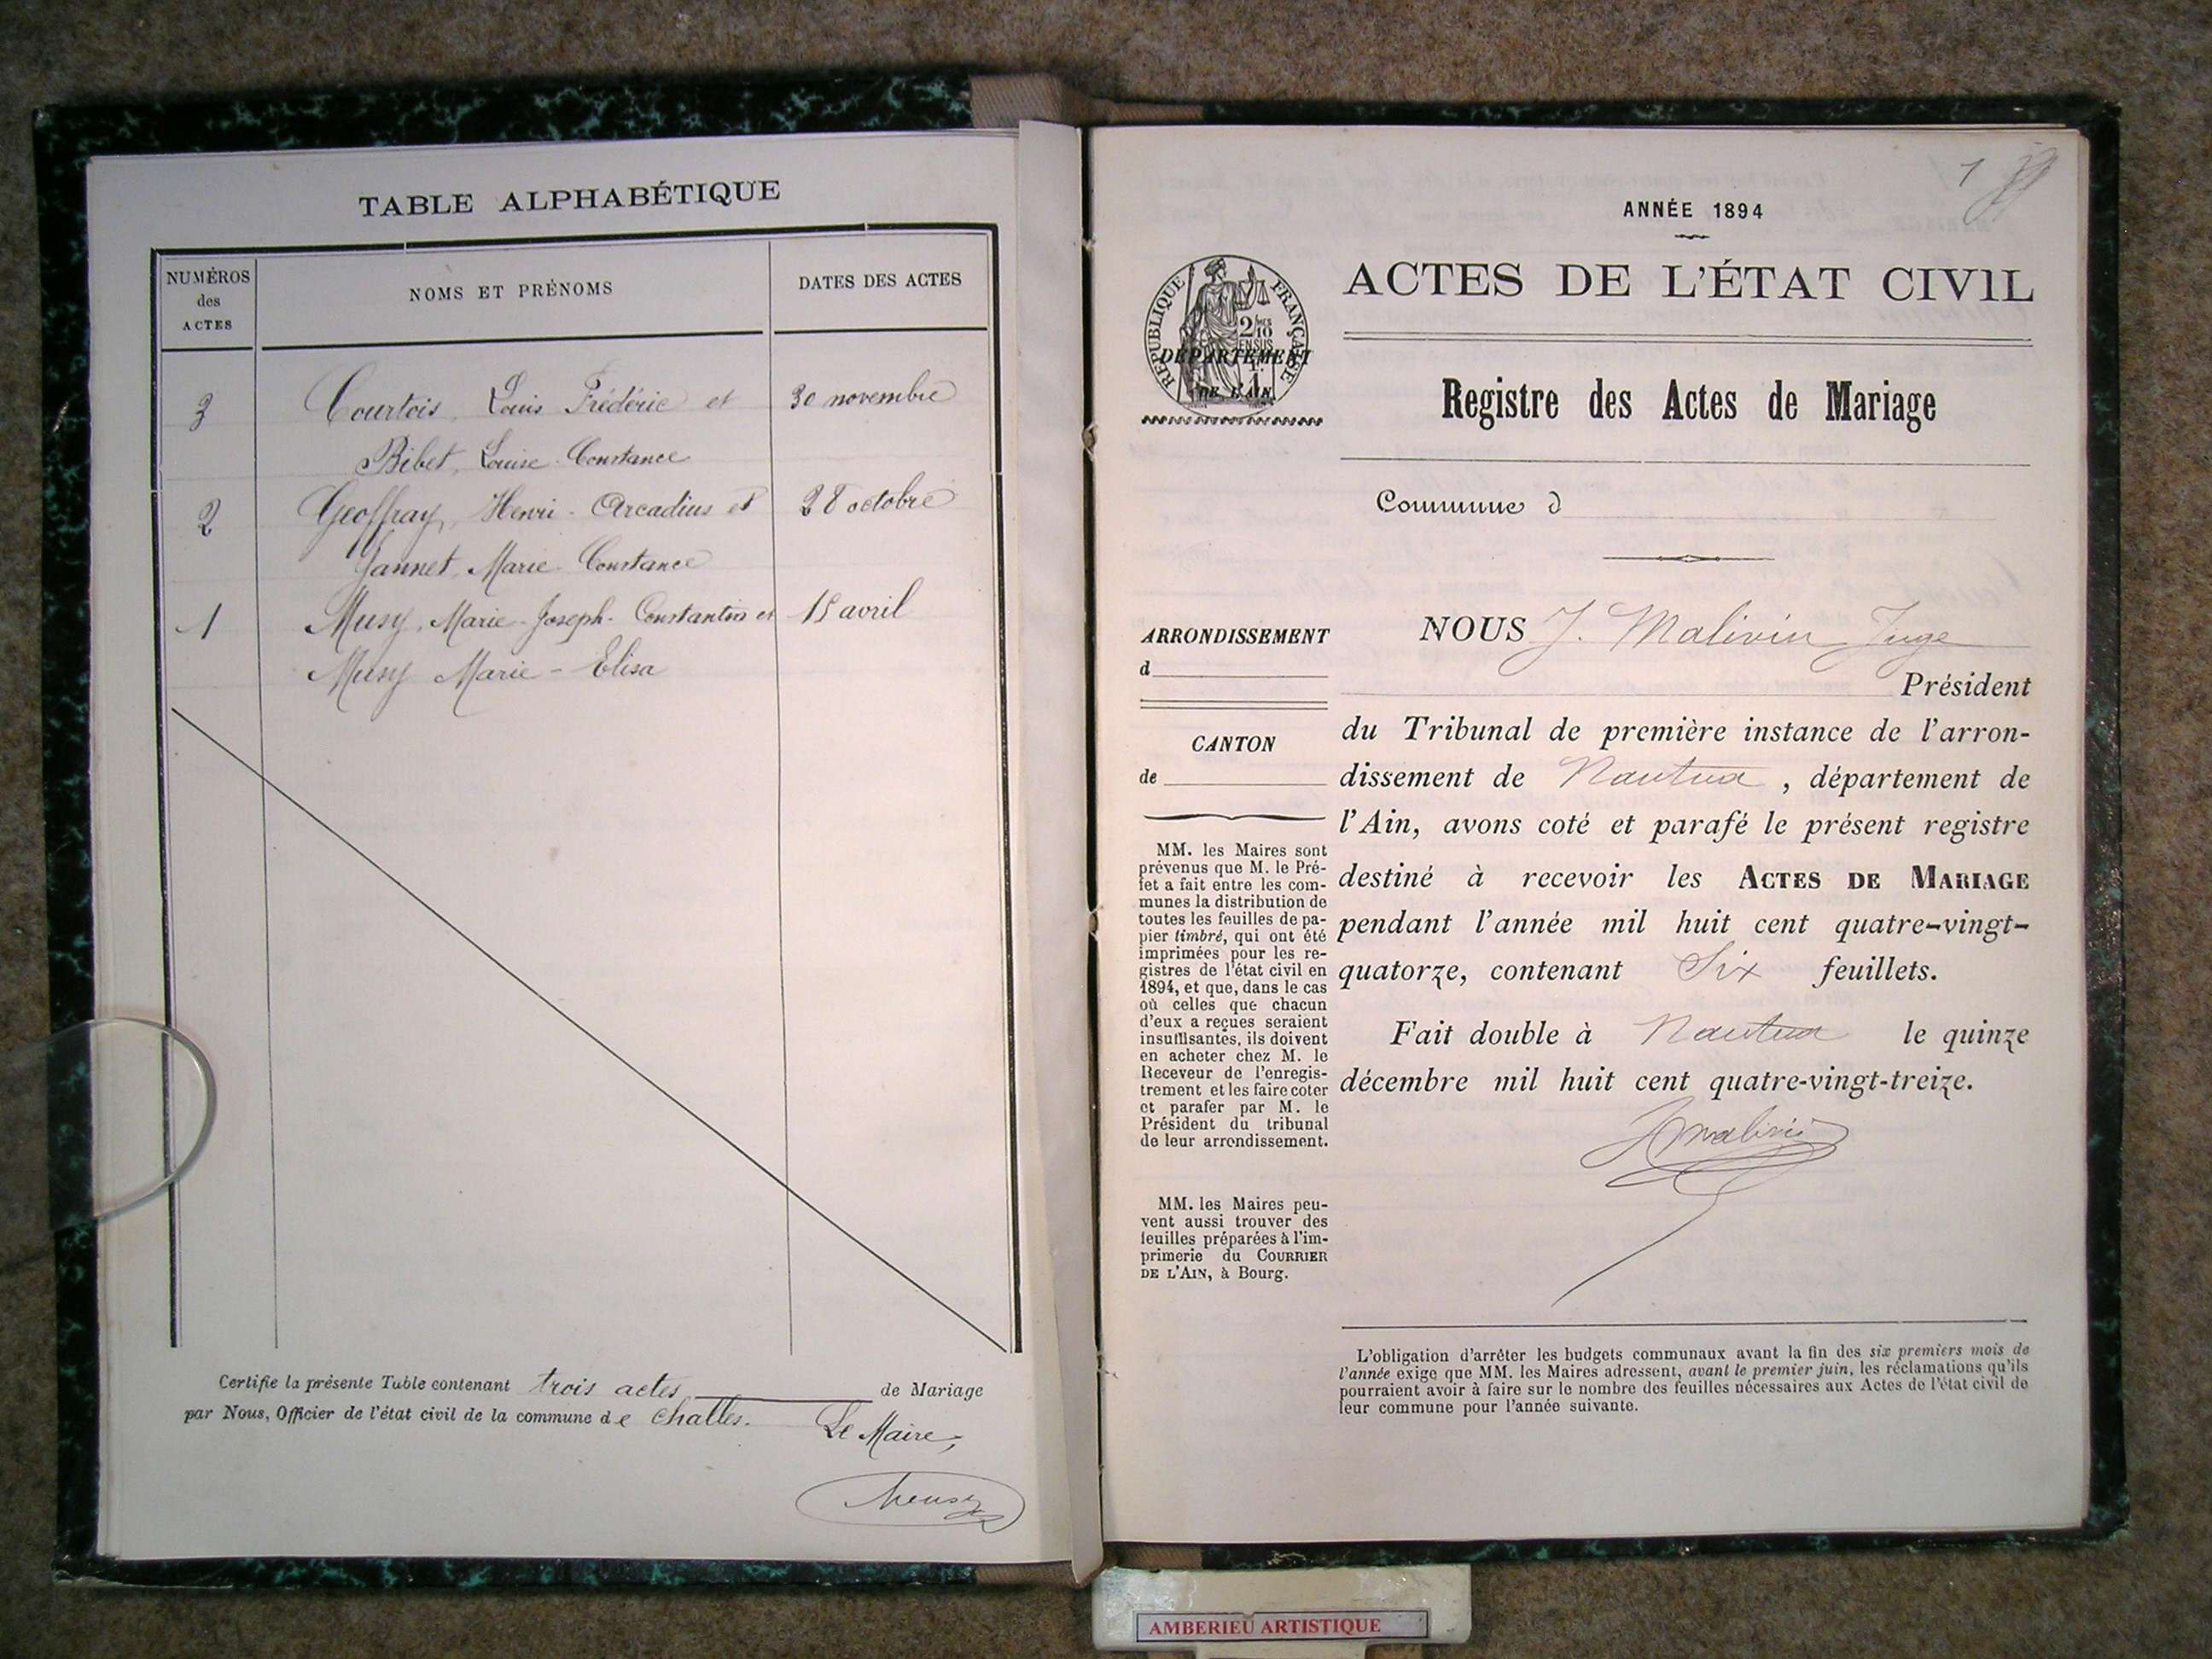 TABLE ALPHABÉTIQUE
NUMÉROS
des
ACTES
NOMS ET PRÉNOMS
DATES DES ACTES
3 Courtois, Louis Frédéric et 30 novembre
Bibet, Louise Constance
2 Geoffray, Henri-Arcadius et 28 octobre
Jannet, Marie-Constance
1 Musy, Marie-Joseph-Constantin et 15 avril
Musy Marie-Elisa
Certifie la présente Table contenant trois actes de Mariage
par Nous, Officier de l'état civil de la commune de Challes.
Le Maire,
1
ANNÉE 1894
RÉPUBLIQUE FRANÇAISE
DÉPARTEMENT
DE L'AIN
ACTES DE L'ÉTAT CIVIL
Registre des Actes de Mariage
Commune d
ARRONDISSEMENT
d
CANTON
de
MM. les Maires sont
prévenus que M. le Pré-
fet a fait entre les com-
munes la distribution de
toutes les feuilles de pa-
pier timbré, qui ont été
imprimées pour les re-
gistres de l'état civil en
1894, et que, dans le cas
où celles que chacun
d'eux a reçues seraient
insuffisantes, ils doivent
en acheter chez M. le
Receveur de l'enregis-
trement et les faire coter
et parafer par M. le
Président du tribunal
de leur arrondissement.
MM. les Maires peu-
vent aussi trouver des
feuilles préparées à l'im-
primerie du COURRIER
DE L'AIN, à Bourg.
NOUS J. Malivin Juge
Président
du Tribunal de première instance de l'arron-
dissement de Nantua, département de
l'Ain, avons coté et parafé le présent registre
destiné à recevoir les ACTES DE MARIAGE
pendant l'année mil huit cent quatre-vingt-
quatorze, contenant Six feuillets.
Fait double à Nantua le quinze
décembre mil huit cent quatre-vingt-treize.
L'obligation d'arrêter les budgets communaux avant la fin des six premiers mois de
l'année exige que MM. les Maires adressent, avant le premier juin, les réclamations qu'ils
pourraient avoir à faire sur le nombre des feuilles nécessaires aux Actes de l'état civil de
leur commune pour l'année suivante.
AMBERIEU ARTISTIQUE